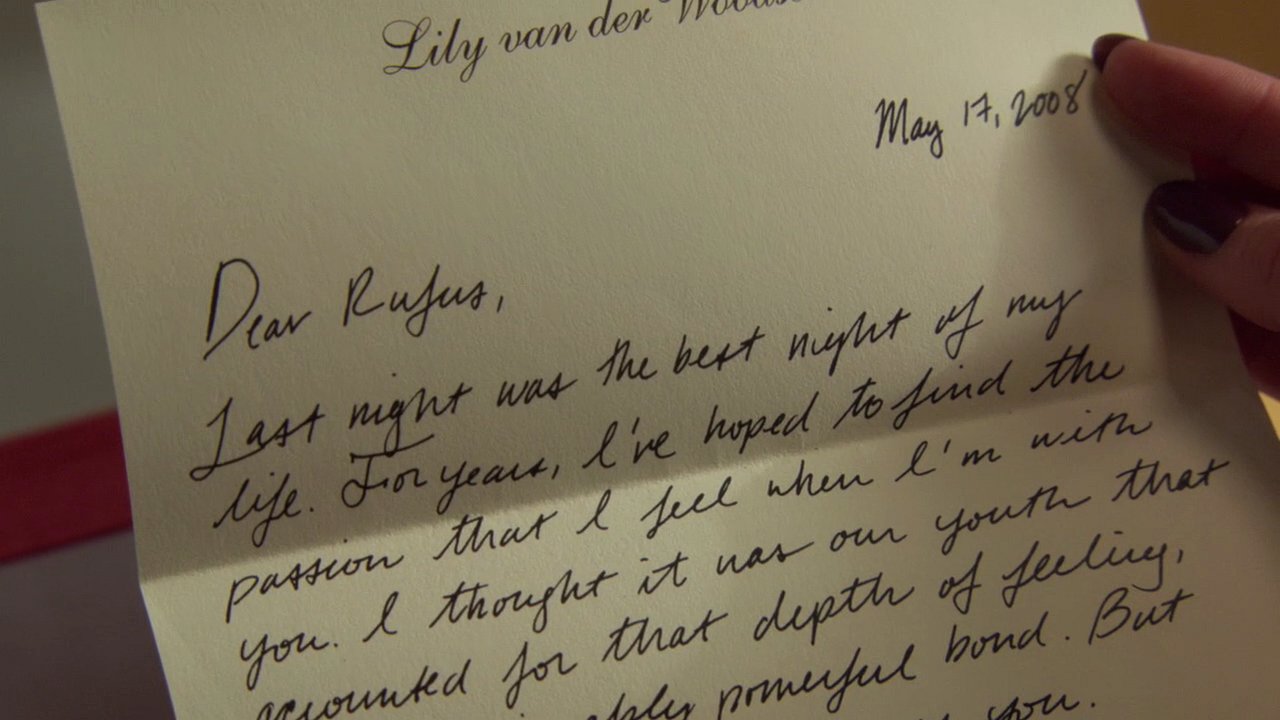 Lily van der
May 17, 2008
Dear Rufus,
Last night was the best night of my
life. For years, I've hoped to find the
passion that I feel when I'm with
you. I thought it was our youth that
accounted for that depth of feeling,
powerful bond. But
you.